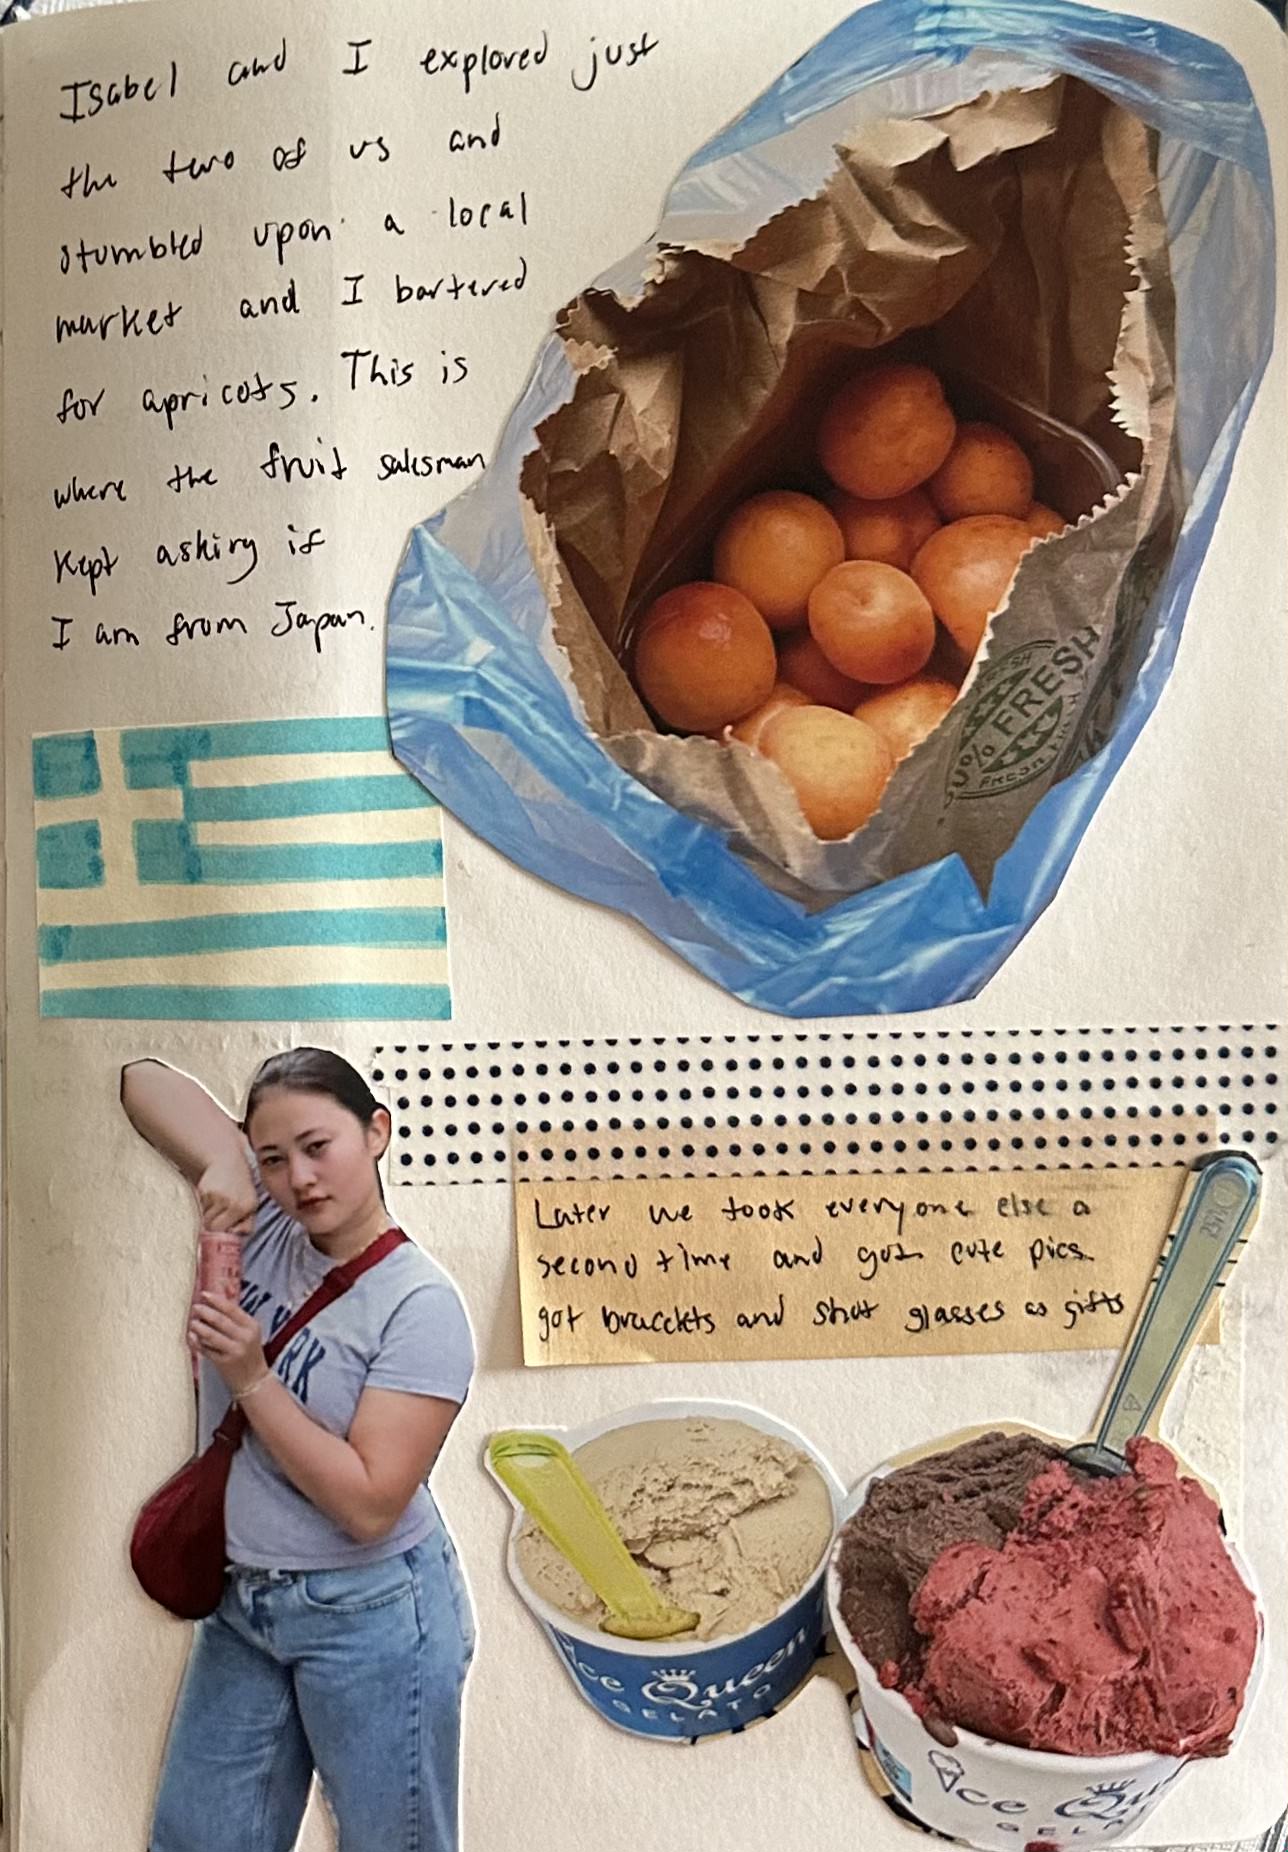 Isabel and I explored just
the two of us and
stumbled upon a local
market and I bartered
for apricots. This is
where the fruit salesman
kept asking if
I am from Japan.
FRESH
FRESH
Later we took everyone else a
second time and got cute pics
got bracelets and shot glasses as gifts
YORK
Ice Queen
GELATO
Ice Qu
GELA